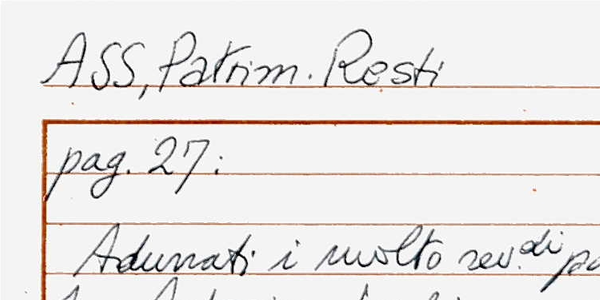 ASS, Patrim. Resti
pag. 27:
Adunati i molto rev.di